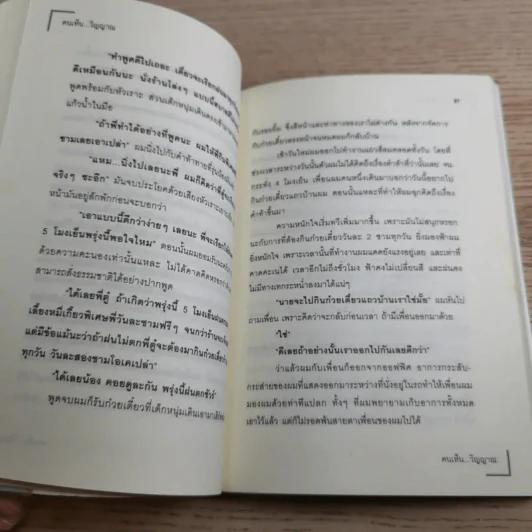 คนเห็น...วิญญาณ
"ทำพูดดีไปเถอะ เดี๋ยวจะเรียก
ดีเหมือนกันนะ นั่งร้านโล่งๆ แบบนี้
พูดพร้อมกับหัวเราะ ส่วนเด็กหนุ่มเดินตรง
แก้วน้ำในมือ
"ถ้าพี่ทำได้อย่างที่พูดนะ ผมให้พี่กิน
ชามเลยเอาเปล่า" ผมนิ่งไปกับคำท้าทาย
"แหม...นิ่งไปเลยนะพี่ ผมก็คิดว่าพี่
จริงๆ ซะอีก" มันจบประโยคด้วยเสียงหัวเราะ
หน้ามันอยู่สักพักก่อนจะบอกว่า
"เอาแบบนี้ดีกว่าง่ายๆ เลยนะ พี่จะเรียก
5 โมงเย็นพรุ่งนี้พอใจไหม" ตอนนั้นผมยอมรับ
ด้วยความคะนองเท่านั้นแหละ ไม่ได้คาดคิด
สามารถสั่งธรรมชาติได้อย่างปากพูด
"ได้เลยพี่ตู่ ถ้าเกิดว่าพรุ่งนี้ 5 โมงเย็นฝน
เลี้ยงหมี่เกี๊ยวพิเศษพี่วันละชามฟรีๆ จนกว่าร้านจะ
แต่มีข้อแม้นะว่าถ้าฝนไม่ตกพี่ตู่จะต้องมากินก๋วยเตี๋ยว
ทุกวัน วันละสองชามโอเคเปล่า"
"ได้เลยน้อง คอยดูละกัน พรุ่งนี้ฝนตกชัวร์"
พูดจบผมก็รับก๋วยเตี๋ยวที่เด็กหนุ่มเดินเอามา
กับรอยยิ้ม ซึ่งสีหน้าและท่าทางของเราไม่ต่างกัน หลังจากจัดการ
กับก๋วยเตี๋ยวตรงหน้าจนหมดผมก็กลับบ้าน
เช้าวันใหม่ผมออกไปทำงานแถวสีลมตลอดทั้งวัน โดยที่
ช่วงเวลาระหว่างวันนั้นตัวผมไม่ได้คิดถึงเรื่องคำท้าที่ว่านี้เลย จน
กระทั่ง 4 โมงเย็น เพื่อนผมคนหนึ่งเดินมาบอกว่าวันนี้อยากไป
กินก๋วยเตี๋ยวแถวบ้านผม ตอนนั้นแหละที่ทำให้ผมฉุกคิดถึงเรื่อง
คำท้าขึ้นมา
ความหนักใจเริ่มทวีเพิ่มมากขึ้น เพราะมันไม่สนุกหรอก
นะกับการที่ต้องกินก๋วยเตี๋ยววันละ 2 ชามทุกวัน ยิ่งมองฟ้าผม
ยิ่งหนักใจ เพราะเวลานั้นที่ทำงานผมแดดยังแรงอยู่เลย และเท่าที่
คาดคะเนได้ เวลาอีกไม่ถึงชั่วโมง ฟ้าคงไม่เปลี่ยนสี และฝนคง
ไม่มีทางเทกระหน่ำลงมาได้แน่ๆ
"นายจะไปกินก๋วยเตี๋ยวแถวบ้านเราใช่มั้ย" ผมหันไป
ถามเพื่อน เพราะคิดว่าจะกลับก่อนเวลา ถ้ามีเพื่อนออกมาด้วย
"ใช่"
"ดีเลยถ้าอย่างนั้นเราออกไปกันเลยดีกว่า"
ว่าแล้วผมกับเพื่อนก็ออกจากออฟฟิต อาการกระสับ
กระส่ายของผมที่แสดงออกมาระหว่างที่นั่งอยู่ในรถทำให้เพื่อนผม
มองผมด้วยท่าทีแปลก ทั้งๆ ที่ผมพยายามเก็บอาการทั้งหมด
เอาไว้แล้ว แต่ก็ไม่รอดพ้นสายตาเพื่อนของผมไปได้
คนเห็น...วิญญาณ